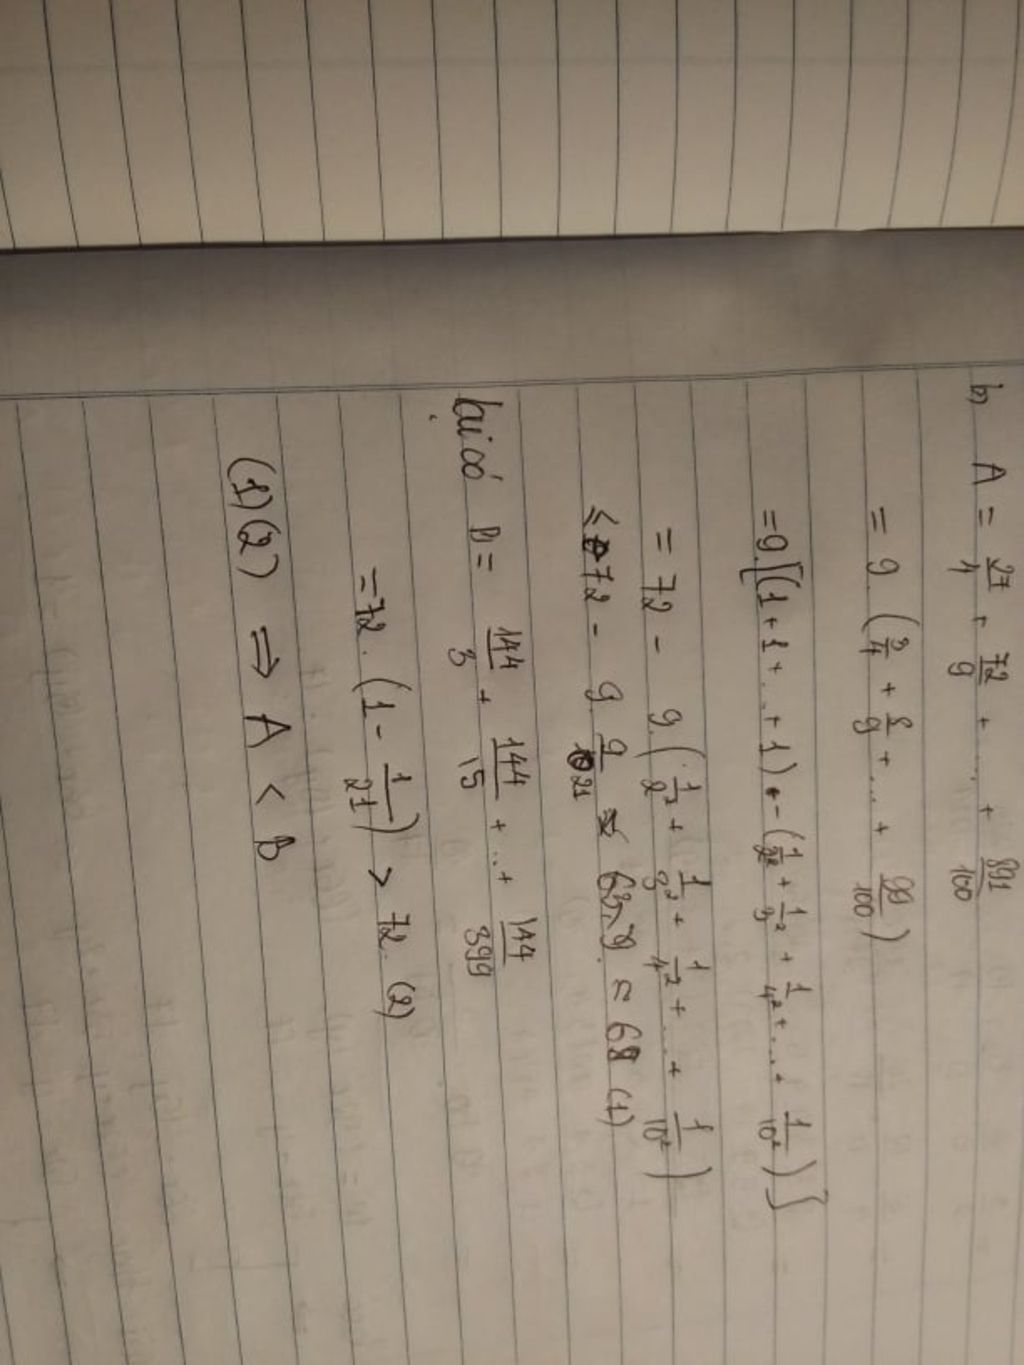 b) A = 27/4 + 72/9 + ... + 891/100
= 9. (3/4 + 8/9 + ... + 99/100)
= 9. [(1 + 1 + ... + 1) - (1/2² + 1/3² + 1/4² + ... + 1/10²)]
= 72 - 9. (1/2² + 1/3² + 1/4² + ... + 1/10²)
< 72 - 9 9/21 = 68 (1)
lại có B = 144/3 + 144/15 + ... + 144/399
= 72. (1 - 1/21) > 72. (2)
(1)(2) ⇒ A < B